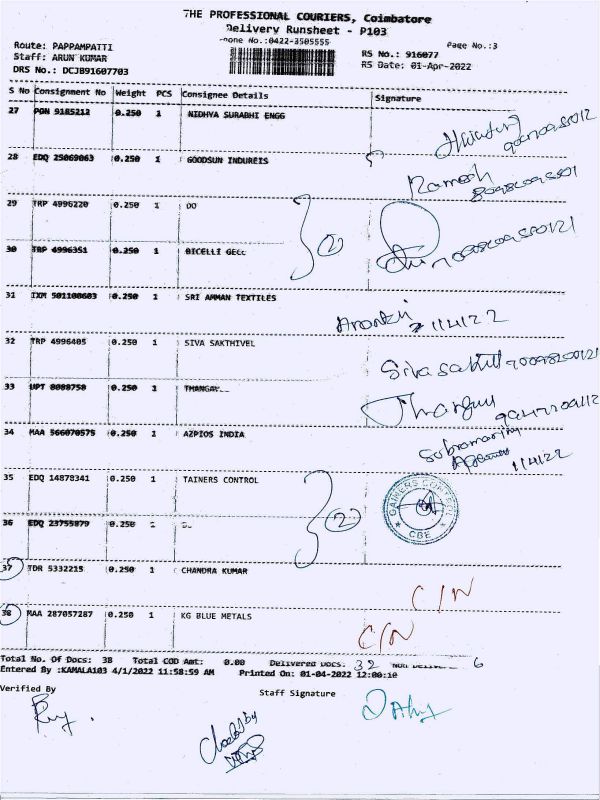 THE PROFESSIONAL COURIERS, Coimbatore
Delivery Runsheet - P103
Phone No.:0422-3505555
Page No.:3
Route: PAPPAMPATTI
RS No.: 916077
Staff: ARUN KUMAR
RS Date: 01-Apr-2022
DRS No.: DCJB91607703
S No Consignment No Weight PCS Consignee Details Signature
27 PGN 9185212 0.250 1 NIDHYA SURABHI ENGG
28 EDQ 25069063 0.250 1 GOODSUN INDUREIS
Ramesh
29 TRP 4996220 0.250 1 DO
2
30 TRP 4996351 0.250 1 BICELLI GECC
31 IXM 501108603 0.250 1 SRI AMMAN TEXTILES
1/4/22
32 TRP 4996405 0.250 1 SIVA SAKTHIVEL
Siva sakthi
33 UPT 8088758 0.250 1 THANGAV
34 MAA 566070575 0.250 1 AZPIOS INDIA
1/4/22
35 EDQ 14878341 0.250 1 TAINERS CONTROL
GAINERS CONTROL
CBE
2
36 EDQ 23755879 0.250
37 TDR 5332215 0.250 1 CHANDRA KUMAR
C/N
38 MAA 287057287 0.250 1 KG BLUE METALS
C/N
Total No. Of Docs: 38 Total COD Amt: 0.00 Delivered Docs: 32 6
Entered By :KAMALA103 4/1/2022 11:58:59 AM Printed On: 01-04-2022 12:00:10
Verified By
Staff Signature